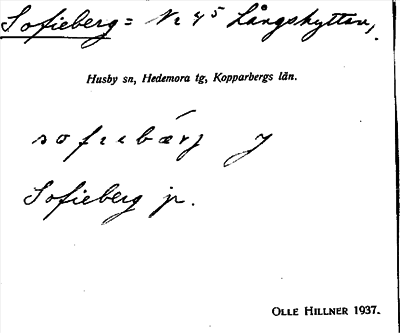 Sofieberg = N 45 Långshyttan,
Husby sn, Hedemora tg, Kopparbergs län.
sofiebærj
Sofieberg jr.
OLLE HILLNER 1937.